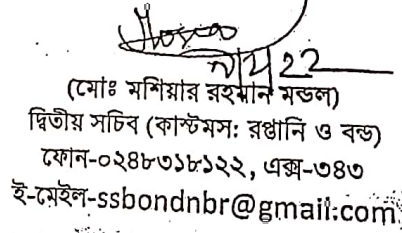 (মোঃ মশিয়ার রহমান মন্ডল)
দ্বিতীয় সচিব (কাস্টমস: রপ্তানি ও বন্ড)
ফোন-০২৪৮৩১৮১২২, এক্স-৩৪৩
ই-মেইল-ssbondnbr@gmail.com